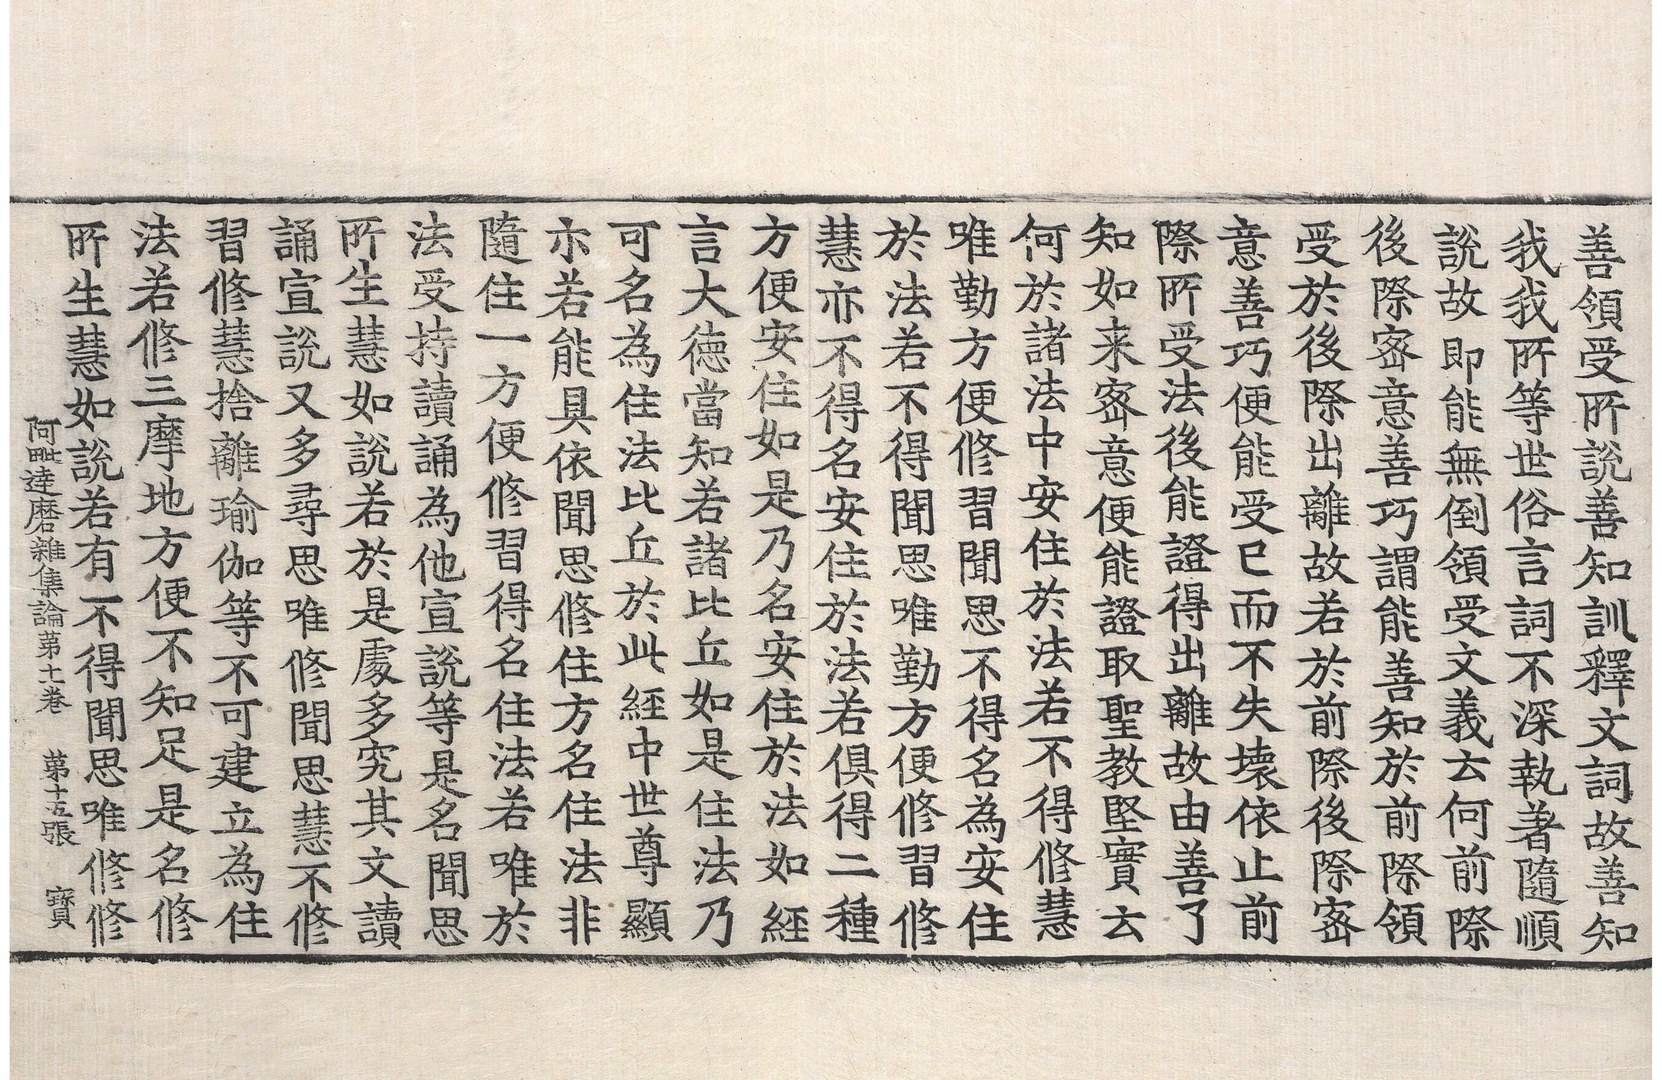 善領受所說善知訓釋文詞故善知
我我所等世俗言詞不深執著隨順
說故即能無倒領受文義云何前際
後際密意善巧謂能善知於前際領
受於後際出離故若於前際後際密
意善巧便能受已而不失壞依止前
際所受法後能證得出離故由善了
知如来密意便能證取聖教堅實云
何於諸法中安住於法若不得修慧
唯勤方便修習聞思不得名為安住
於法若不得聞思唯勤方便修習修
慧亦不得名安住於法若俱得二種
方便安住如是乃名安住於法如經
言大德當知若諸比丘如是住法乃
可名為住法比丘於此經中世尊顯
示若能具依聞思修住方名住法非
隨住一方便修習得名住法若唯於
法受持讀誦為他宣說等是名聞思
所生慧如說若於是處多究其文讀
誦宣說又多尋思唯修聞思慧不修
習修慧捨離瑜伽等不可建立為住
法若修三摩地方便不知足是名修
所生慧如說若有不得聞思唯修修
阿毗達磨雜集論第十一卷 第十五張 寶